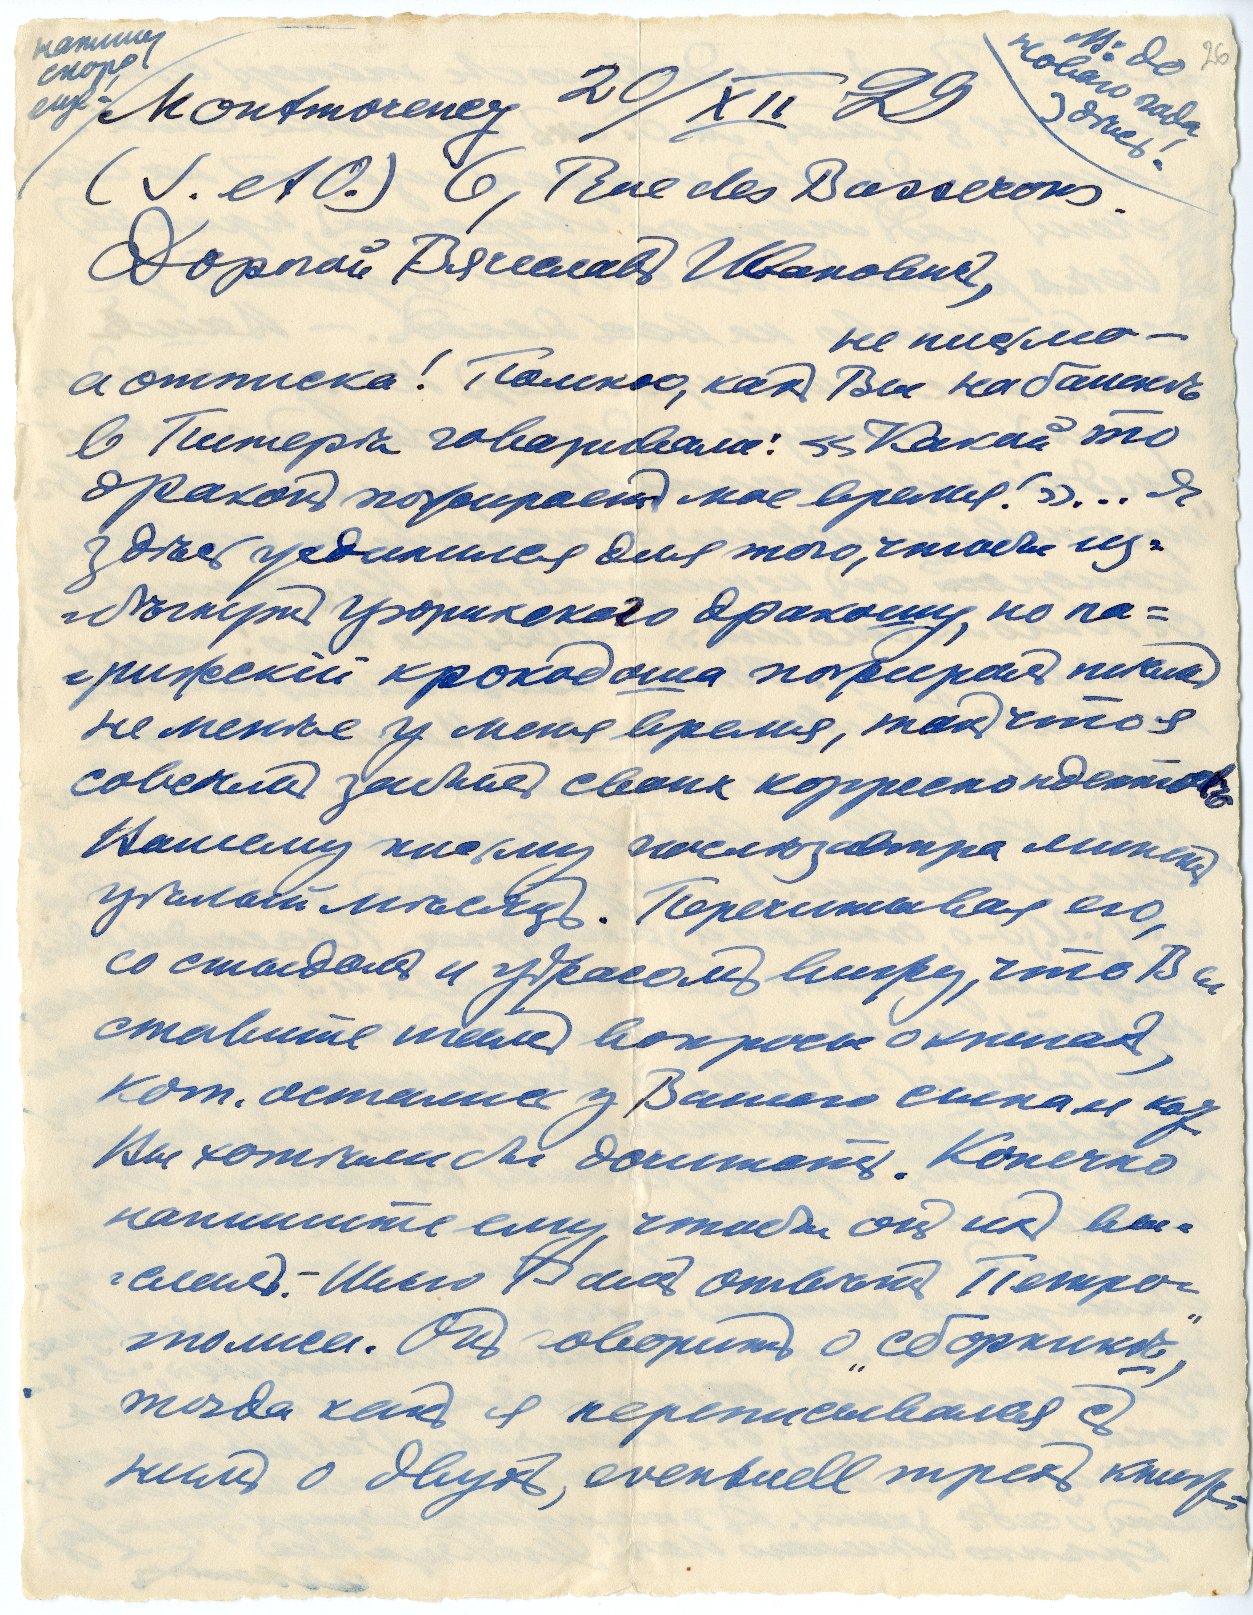 напишу
скоро
еще
М: до
Новаго года
здѣсь!
26
Montmorency 20/XII 29
(S. et O.) 6, Rue des Basserons.
Дорогой Вячеславъ Ивановичъ,
не письмо —
а отписка! Помню, какъ Вы на башнѣ
в Питерѣ говаривали: «Какой то
драконъ пожираетъ мое время!»... Я
здѣсь уединился для того, чтобы из=
=бѣгнуть цюрихскаго дракошу, но па=
=рижскій крокодоша пожиралъ
не менѣе у меня время, такъ что я
совсѣмъ забылъ своих корреспондентовъ
Вашему письму послѣзавтра минетъ
цѣлый мѣсяцъ. Перечитывая его,
со стыдомъ и ужасомъ вижу, что Вы
ставите тамъ вопросы о книгахъ,
кот. остались у Вашего сына и кот
Вы хотѣли бы дочитать. Конечно
напишите ему, чтобы онъ их вы=
=слалъ. — Вамъ отвѣтъ Петро=
полиса. Онъ говоритъ о „сборникѣ",
тогда какъ я переписывался съ
нимъ о двухъ, eventuell трехъ книж=